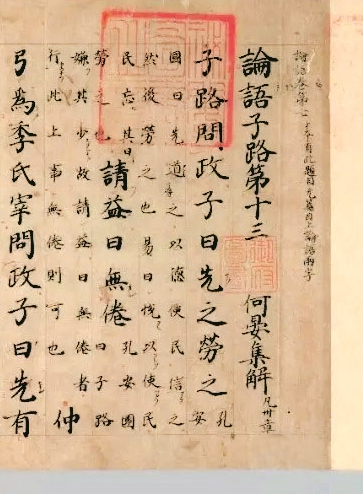 論語子路第十三 何晏集解 凡卅章
子路問政子曰先之勞之 孔安
國曰先道之以德使民信之
然後勞之也易曰悅以使民
民忘其勞 也 請益曰無倦 孔安國曰子路
嫌其少故請益曰無倦者
行此上事無倦則可也 仲
弓為季氏宰問政子曰先有